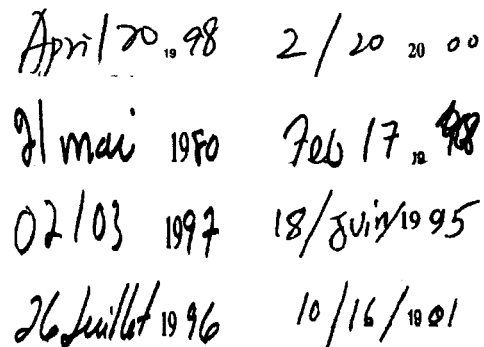 April 20, 19 98 2/20 20 00
21 mai 1980 Feb 17, 19 98
02/03 1997 18/Juin/1995
26 Juillet 1996 10/16/1901